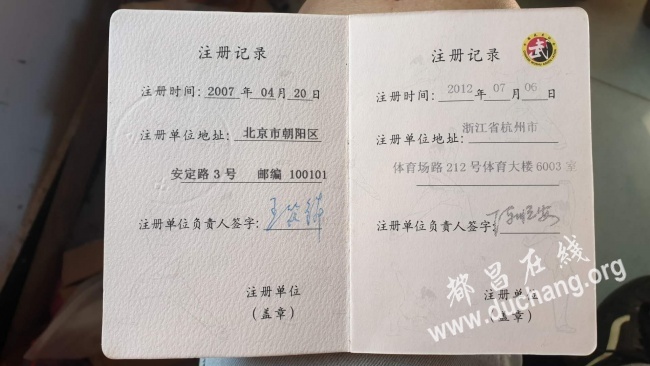 注册记录
注册时间: 2007 年 04 月 20 日
注册单位地址: 北京市朝阳区
安定路 3 号 邮编 100101
注册单位负责人签字:
注册单位
(盖章)
注册记录
武
注册时间: 2012 年 07 月 06 日
浙江省杭州市
注册单位地址:
体育场路 212 号体育大楼 6003 室
注册单位负责人签字:
注册单位
(盖章)
都昌在线
www.duchang.org